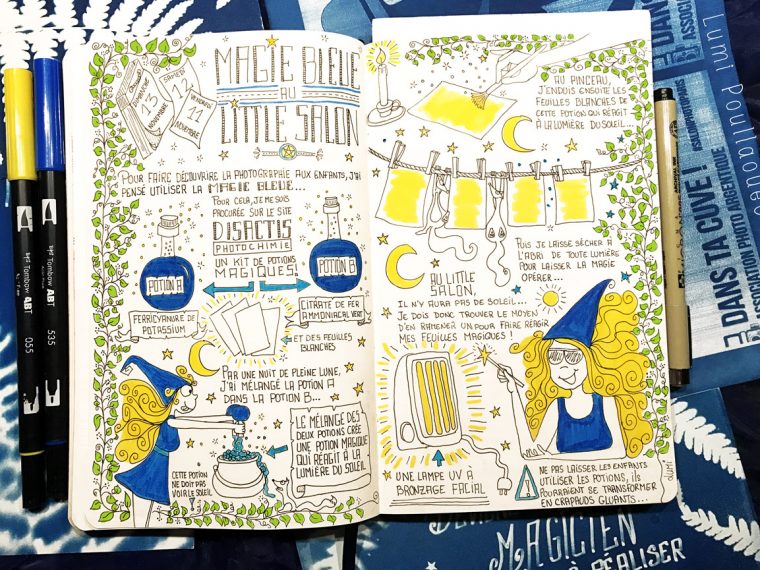 MAGIE BLEUE
AU
LITTLE SALON
DIMANCHE
13
NOVEMBRE
SAMEDI
12
VENDREDI
11
NOVEMBRE
POUR FAIRE DÉCOUVRIR LA PHOTOGRAPHIE AUX ENFANTS, J'AI
PENSÉ UTILISER LA MAGIE BLEUE...
POUR CELA, JE ME SUIS
PROCURÉE SUR LE SITE
DISACTIS
PHOTOCHIMIE
UN KIT DE POTIONS
MAGIQUES!
POTION A
POTION B
FERRICYANURE DE
POTASSIUM
CITRATE DE FER
AMMONIACAL VERT
ET DES FEUILLES
BLANCHES
PAR UNE NUIT DE PLEINE LUNE,
J'AI MÉLANGÉ LA POTION A
DANS LA POTION B...
LE MÉLANGE DES
DEUX POTIONS CRÉE
UNE POTION MAGIQUE
QUI RÉAGIT À LA
LUMIÈRE DU SOLEIL
CETTE POTION
NE DOIT PAS
VOIR LE SOLEIL!
AU PINCEAU,
J'ENDUIS ENSUITE LES
FEUILLES BLANCHES DE
CETTE POTION QUI RÉAGIT
À LA LUMIÈRE DU SOLEIL...
PUIS JE LAISSE SÉCHER À
L'ABRI DE TOUTE LUMIÈRE
POUR LAISSER LA MAGIE
OPÉRER...
AU LITTLE
SALON,
IL N'Y AURA PAS DE SOLEIL...
JE DOIS DONC TROUVER LE MOYEN
D'EN RAMENER UN POUR FAIRE RÉAGIR
MES FEUILLES MAGIQUES!
UNE LAMPE UV À
BRONZAGE FACIAL
NE PAS LAISSER LES ENFANTS
UTILISER LES POTIONS, ILS
POURRAIENT SE TRANSFORMER
EN CRAPAUDS GLUANTS...
LUMI
Tombow ABT
055
Tombow ABT
535
Lumi Poullaouec
DANS TA CUVE!
ASSOCIATION PHOTO ARGENTIQUE
MAGICIEN
À RÉALISER